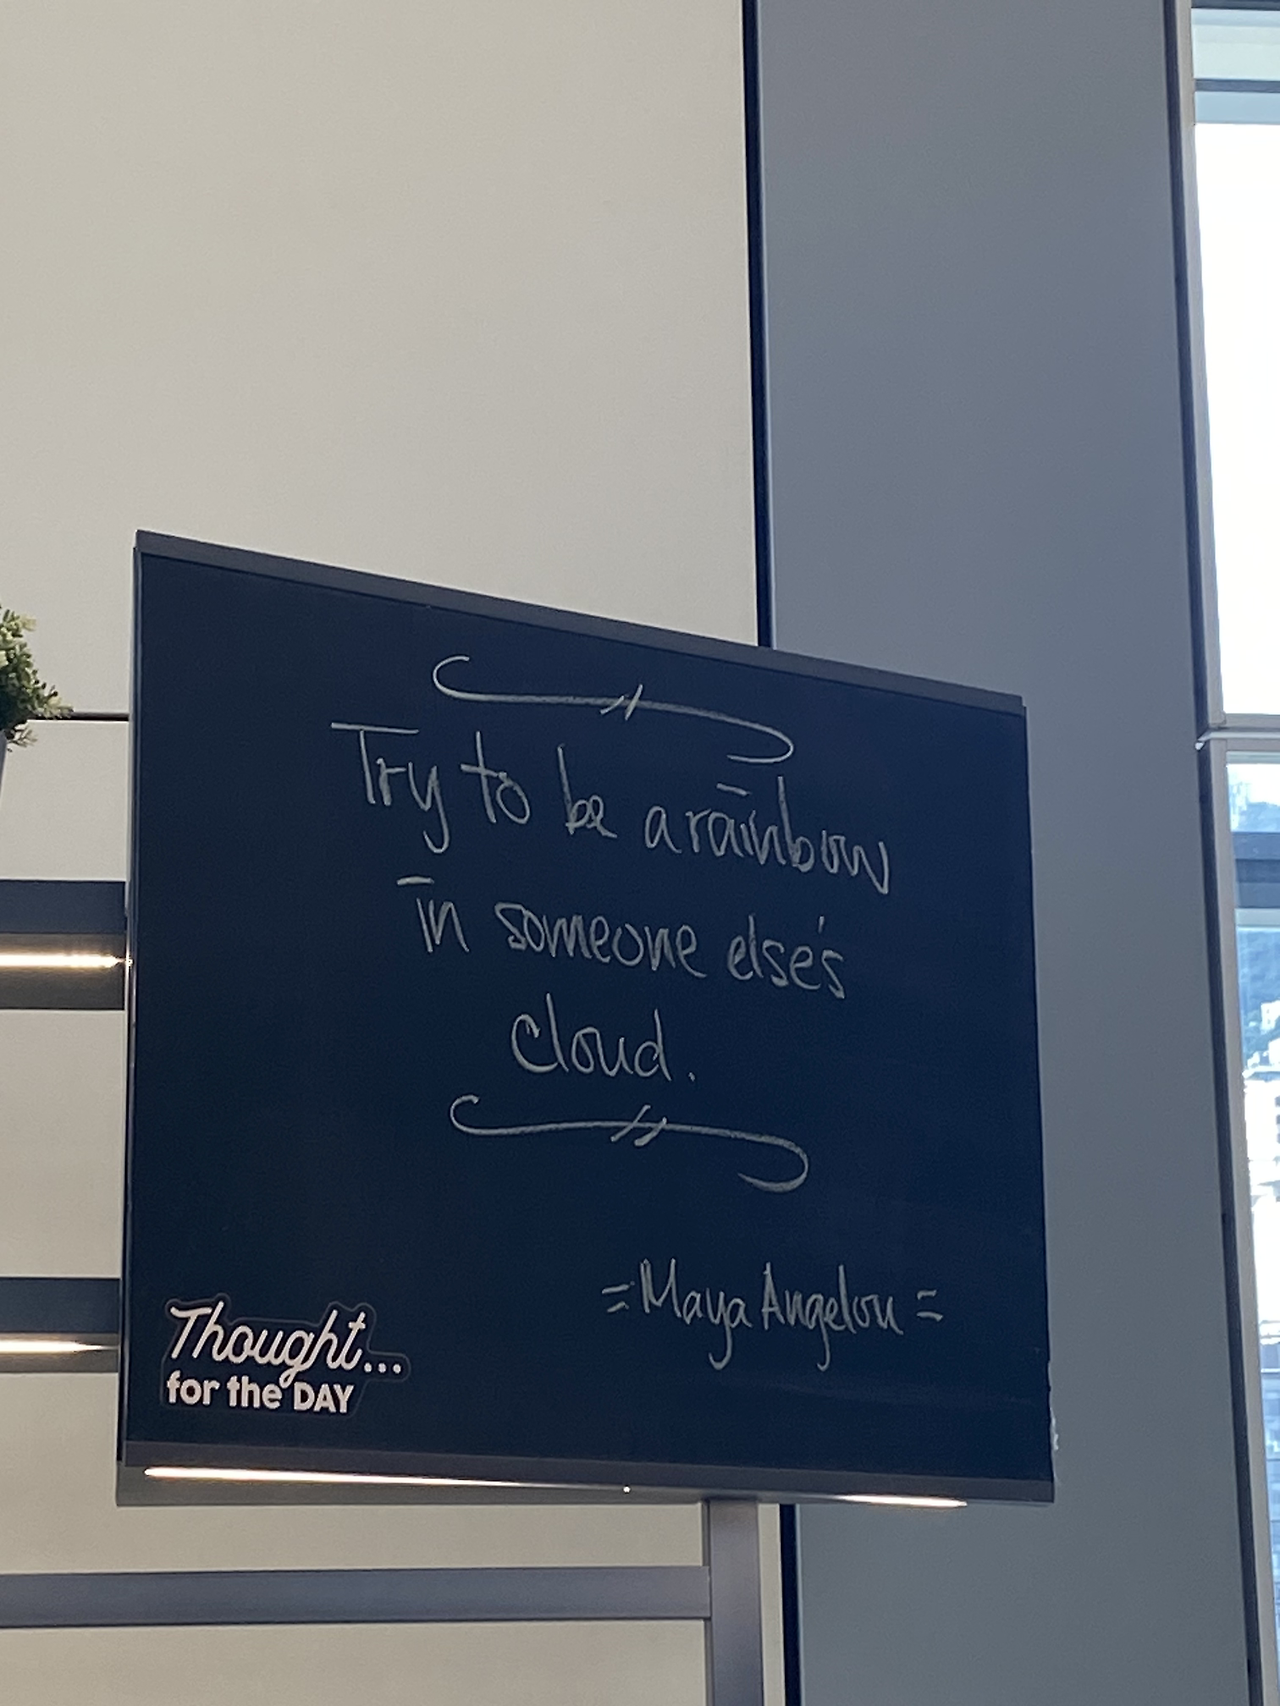 Try to be a rainbow
in someone else's
cloud.
=Maya Angelou=
Thought...
for the DAY